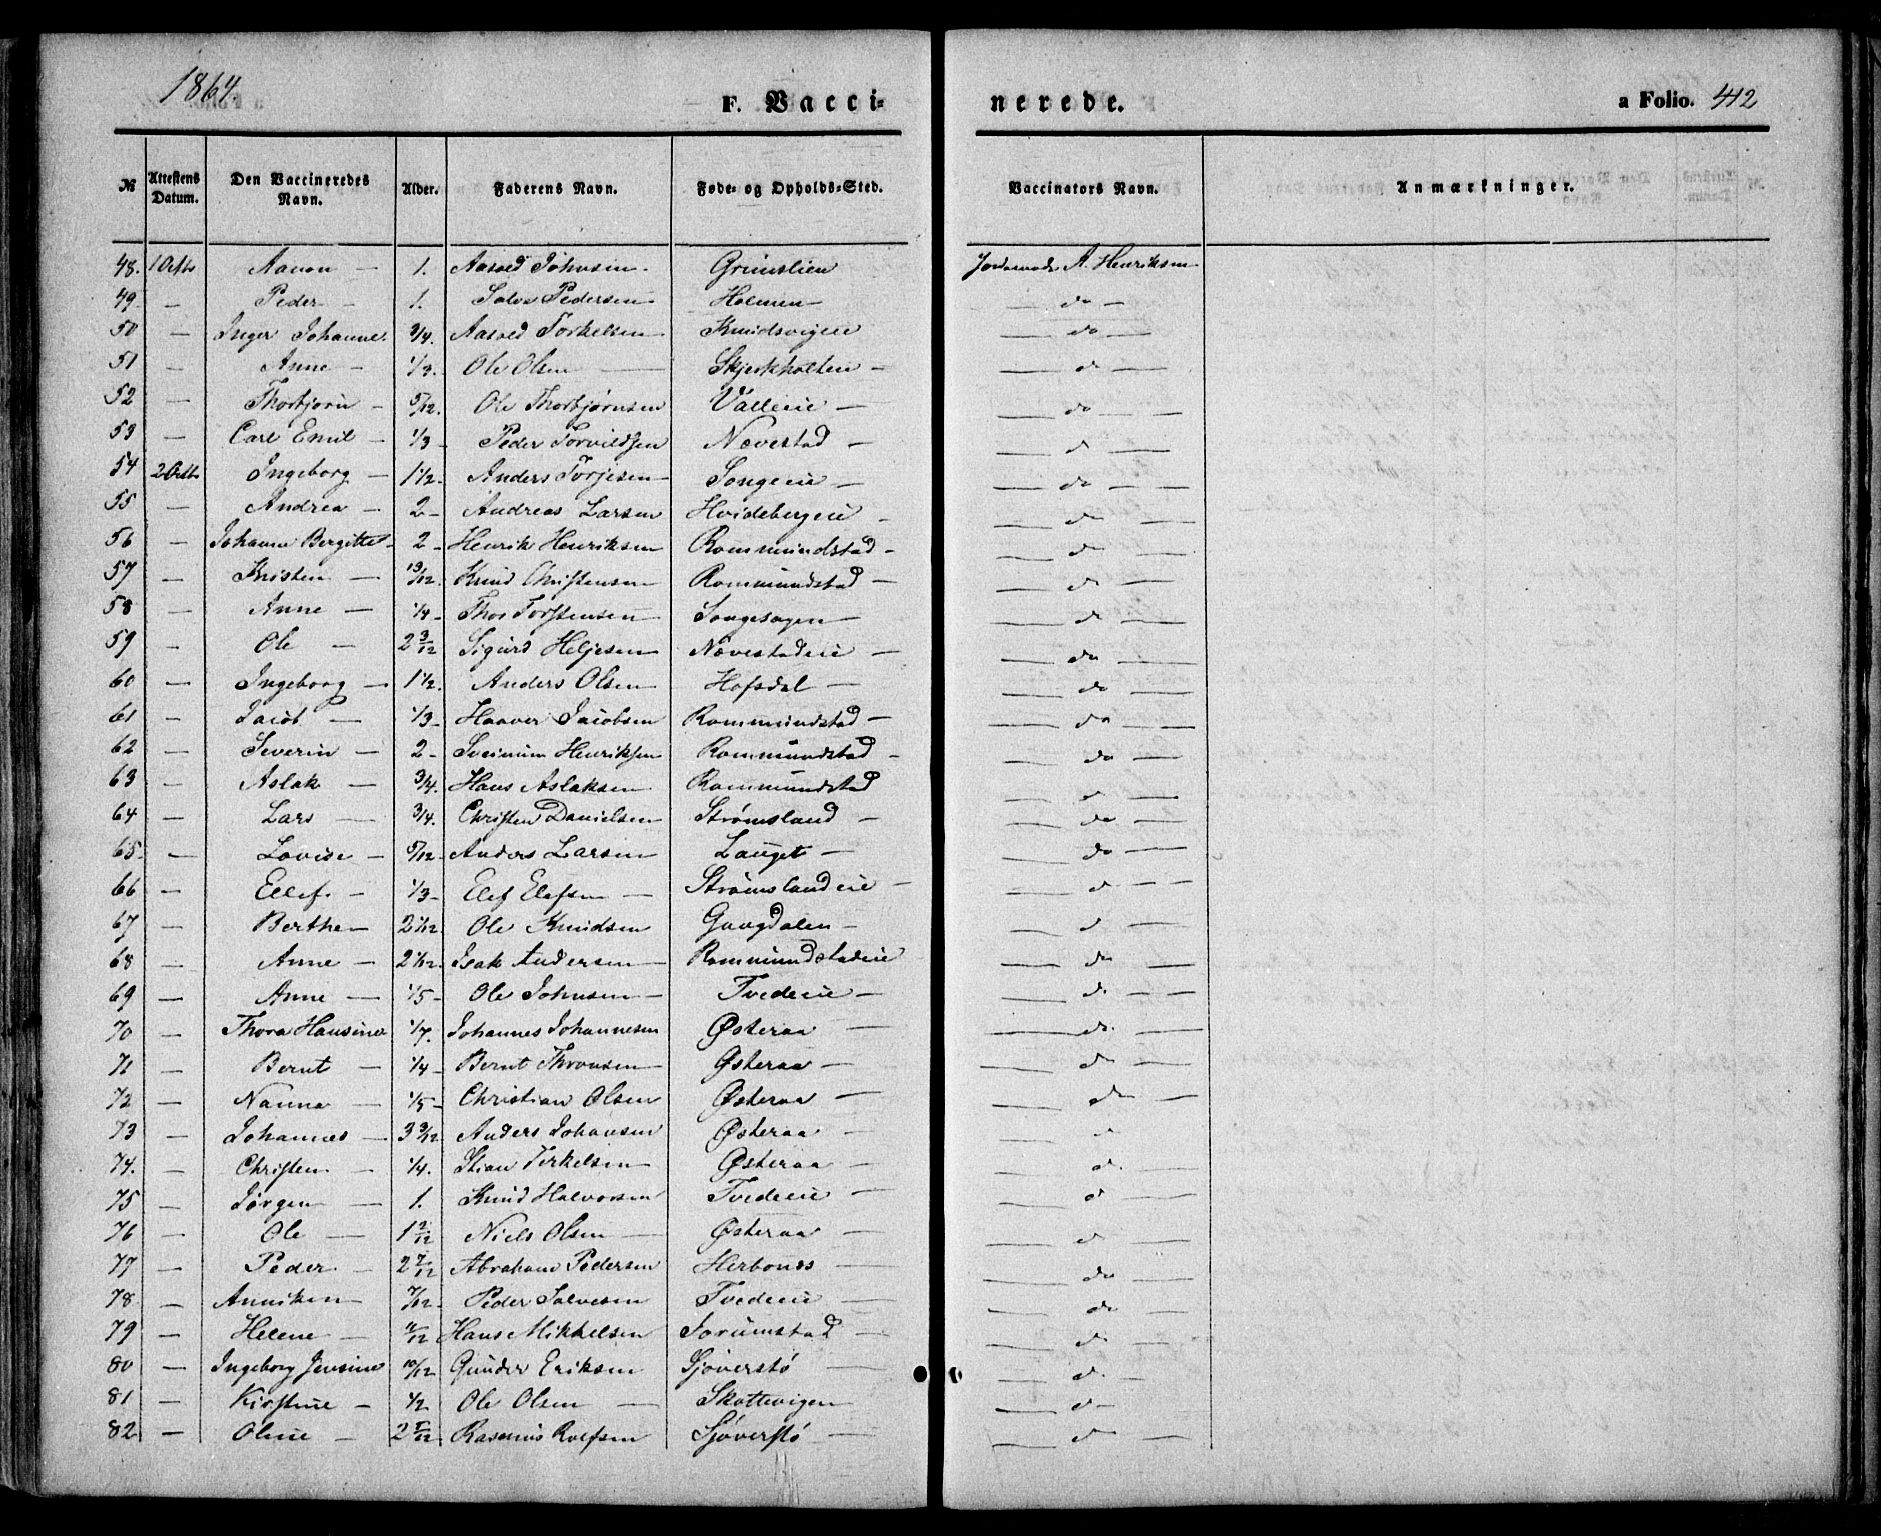 1864
F. Vacci-
nerede.
a Folio. 412
№ Attestens Datum. Den Vaccineredes Navn. Alder. Faderens Navn. Føde- og Opholds-Sted. Vaccinators Navn. Anmærkninger.
48. 1 Octb Aanon — 1. Aasved Johnsen. Grimslien Jordemoder A. Henriksen
49. — Peder — 1. Salve Pedersen Holmen — do —
50 — Inger Johanne 3/4. Aasved Torkelsen Knudsvigeie — do —
51 — Anne — 1/3. Ole Olsen — Skjerkholteie — — d —
52 — Thorbjørn — 5/12. Ole Thorbjørnsen Valleeie — — do —
53 — Carl Emil — 1/3 — Peder Torvildsen Nævestad — — d —
54 2 Octb Ingeborg — 1 1/2. Anders Torjesen Songeeie — — do —
55 — Andrea — 2 — Andreas Larsen Hvidebergeie — — do —
56 — Johanne Bergitte — 2 — Henrik Henriksen Rommundstad — — do —
57 — Kristen — 13/12. Knud Christensen Rommundstad — — d —
58 — Anne — 1/4 — Thor Torstensen Songesagen — — d —
59 — Ole — 2 3/12 Sigurd Heljesen Nævestadeie — — do —
60 — Ingeborg — 1 1/2. Anders Olsen Hofsdal — — do —
61 — Jacob — 1/3 — Haaver Jacobsen Rommundstad — — do —
62 — Severin — 2 — Sveinum Henriksen Rommundstad — — do —
63 — Aslak — 3/4. Hans Aslaksen Rommundstad — d —
64 — Lars — 3/4. Christen Danielsen Strømsland — — do —
65. — Lovise — 5/12 — Anders Larsen Lauget — — do —
66 — Ellef. — 1/3 — Elef Elefsen — Strømslandeie — — d —
67 — Berthe — 2 1/12 Ole Knudsen Gaasdalen — — d —
68 — Anne — 2 1/12. Isak Andersen — Rommundstadeie — do —
69 — Anne — 1/5 — Ole Johnsen — Tvedeeie — — do —
70 — Thora Hansine 1/7. Johannes Johannesen Østeraa — — do —
71 — Bernt — 1/4 — Bernt Thronsen — Østeraa — — d —
72 — Nanna — 1/5 — Christian Olsen Østeraa — — do —
73 — Johannes — 3 3/12. Anders Johansen Østeraa — — d —
74. — Christen — 1/4. Stian Terkelsen — Østeraa — — d. —
75 — Jørgen — 1. Knud Halvorsen Tvedeeie — — d —
76 — Ole — 1 2/12 Niels Olsen — Østeraa — — d —
77 — Peder — 2 7/12 Abraham Pedersen Herbones — — do —
78 — Anniken — 7/12. Peder Salvesen Tvedeeie — — do —
79 — Helene — 11/12 Hans Mikkelsen Jorumstad — — d —
80 — Ingeborg Jensine 10/12 Gunder Eriksen Sjøverstø — — d. —
81 — Kirstine — 1/2 Ole Olsen — Skottevigen — d —
82 — Oline — 2 5/12 Rasmus Rolfsen Sjøverstø — — d —